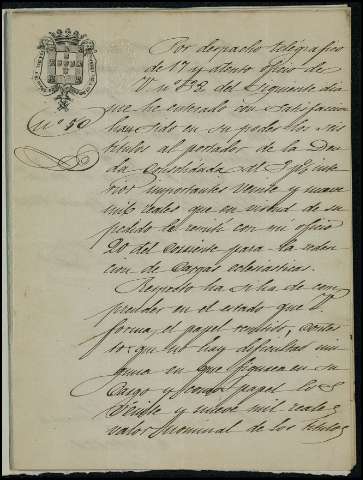 Por despacho telegrafico
de 17 y atento oficio de
V. nº 532 del siguiente dia
que he enterado con satisfaccion
han sido en su poder los seis
titulos al portador de la Deu
da Consolidada al 3 p% inte
rior importantes veinte y nueve
mil reales que en virtud de su
pedido le remiti con mi oficio
20 del corriente para la reden
cion de cargas eclesiasticas.
Nº 50
Respecto ha si ha de com
prender en el estado que V.
forma, el papel remitido, contes
to: que no hay dificultad nin
guna en que figuren en su
Cargo y como papel los
veinte y nueve mil reales
valor nominal de los titulos